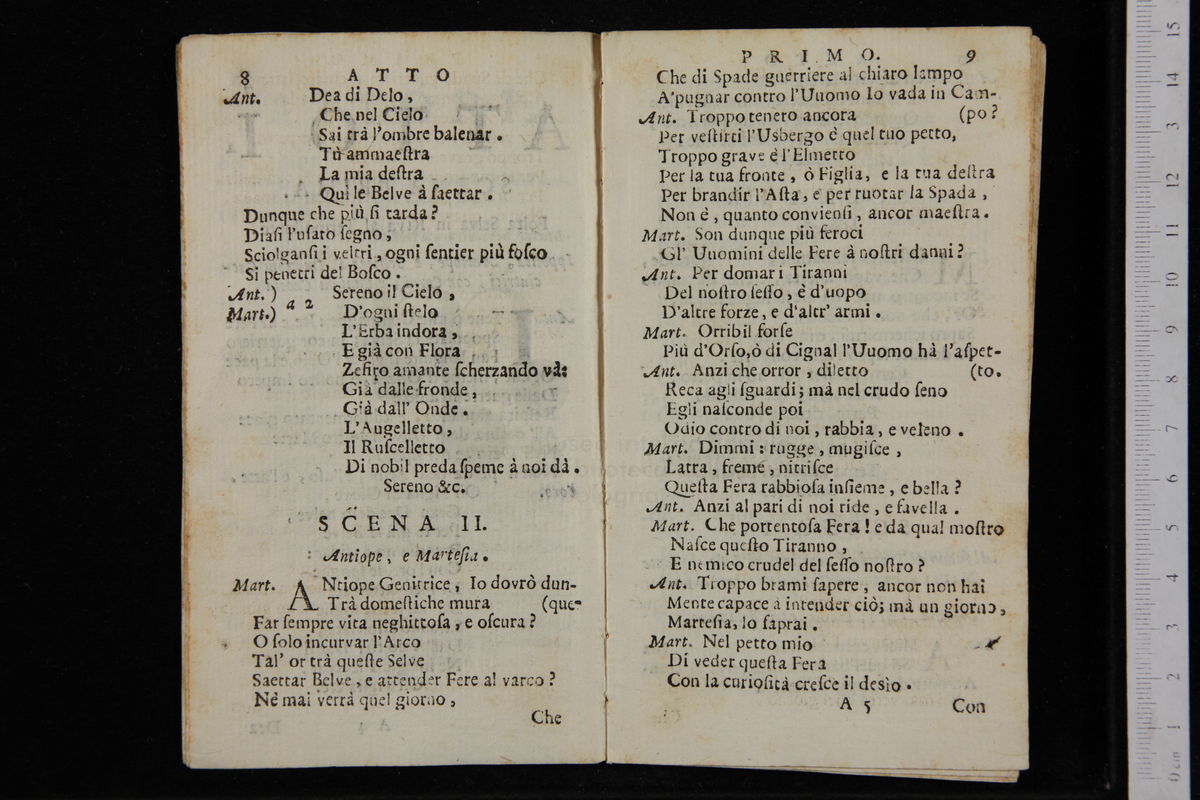 8 ATTO
Ant. Dea di Delo,
Che nel Cielo
Sai trà l'ombre balenar.
Tù ammaeſtra
La mia deſtra
Quì le Belve à ſaettar.
Dunque che più ſi tarda?
Diaſi l'uſato ſegno,
Sciolganſi i veltri, ogni ſentier più foſco
Si penetri del Boſco.
Ant.) a 2 Sereno il Cielo,
Mart.) D'ogni ſtelo
L'Erba indora,
E già con Flora
Zefiro amante ſcherzando và:
Già dalle fronde,
Già dall' Onde.
L'Augelletto,
Il Ruſcelletto
Di nobil preda ſpeme à noi dà.
Sereno &c.
SCENA II.
Antiope, e Marteſia.
Mart. ANtiope Genitrice, Io dovrò dun-
Trà domeſtiche mura (que-
Far ſempre vita neghittoſa, e oſcura?
O ſolo incurvar l'Arco
Tal' or trà queſte Selve
Saettar Belve, e attender Fere al varco?
Nè mai verrà quel giorno,
Che
PRIMO. 9
Che di Spade guerriere al chiaro lampo
A'pugnar contro l'Uuomo Io vada in Cam-
Ant. Troppo tenero ancora (po?
Per veſtirti l'Usbergo è quel tuo petto,
Troppo grave è l'Elmetto
Per la tua fronte, ò Figlia, e la tua deſtra
Per brandir l'Aſta, e per ruotar la Spada,
Non è, quanto convienſi, ancor maeſtra.
Mart. Son dunque più feroci
Gl' Uuomini delle Fere à noſtri danni?
Ant. Per domar i Tiranni
Del noſtro ſeſſo, è d'uopo
D'altre forze, e d'altr' armi.
Mart. Orribil forſe
Più d'Orſo, ò di Cignal l'Uuomo hà l'aſpet-
Ant. Anzi che orror, diletto (to.
Reca agli ſguardi; mà nel crudo ſeno
Egli naſconde poi
Odio contro di noi, rabbia, e veleno.
Mart. Dimmi: rugge, mugiſce,
Latra, freme, nitriſce
Queſta Fera rabbioſa inſieme, e bella?
Ant. Anzi al pari di noi ride, e favella.
Mart. Che portentoſa Fera! e da qual moſtro
Naſce queſto Tiranno,
E nemico crudel del ſeſſo noſtro?
Ant. Troppo brami ſapere, ancor non hai
Mente capace à intender ciò; mà un giorno,
Marteſia, lo ſaprai.
Mart. Nel petto mio
Di veder queſta Fera
Con la curioſità creſce il desìo.
A 5 Con